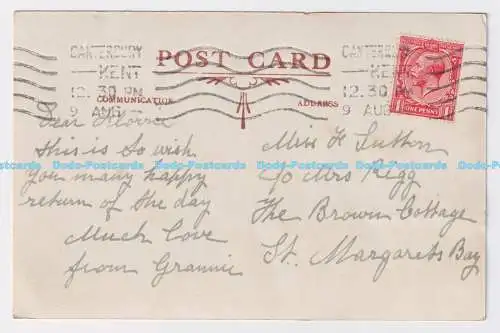 CANTERBURY
KENT
12.30 PM
9 AUG
POST CARD
CANTERBURY
KENT
12.30 PM
9 AUG
ONE PENNY
COMMUNICATION
ADDRESS
Dear
this is to wish
You many happy
return of the day
Much Love
from Grannie
Miss F Sutton
c/o Mrs Kegg
The Brown Cottage
St. Margarets Bay
Dodo-Postcards Dodo-Postcards Dodo-Postcards Dodo-Postcards